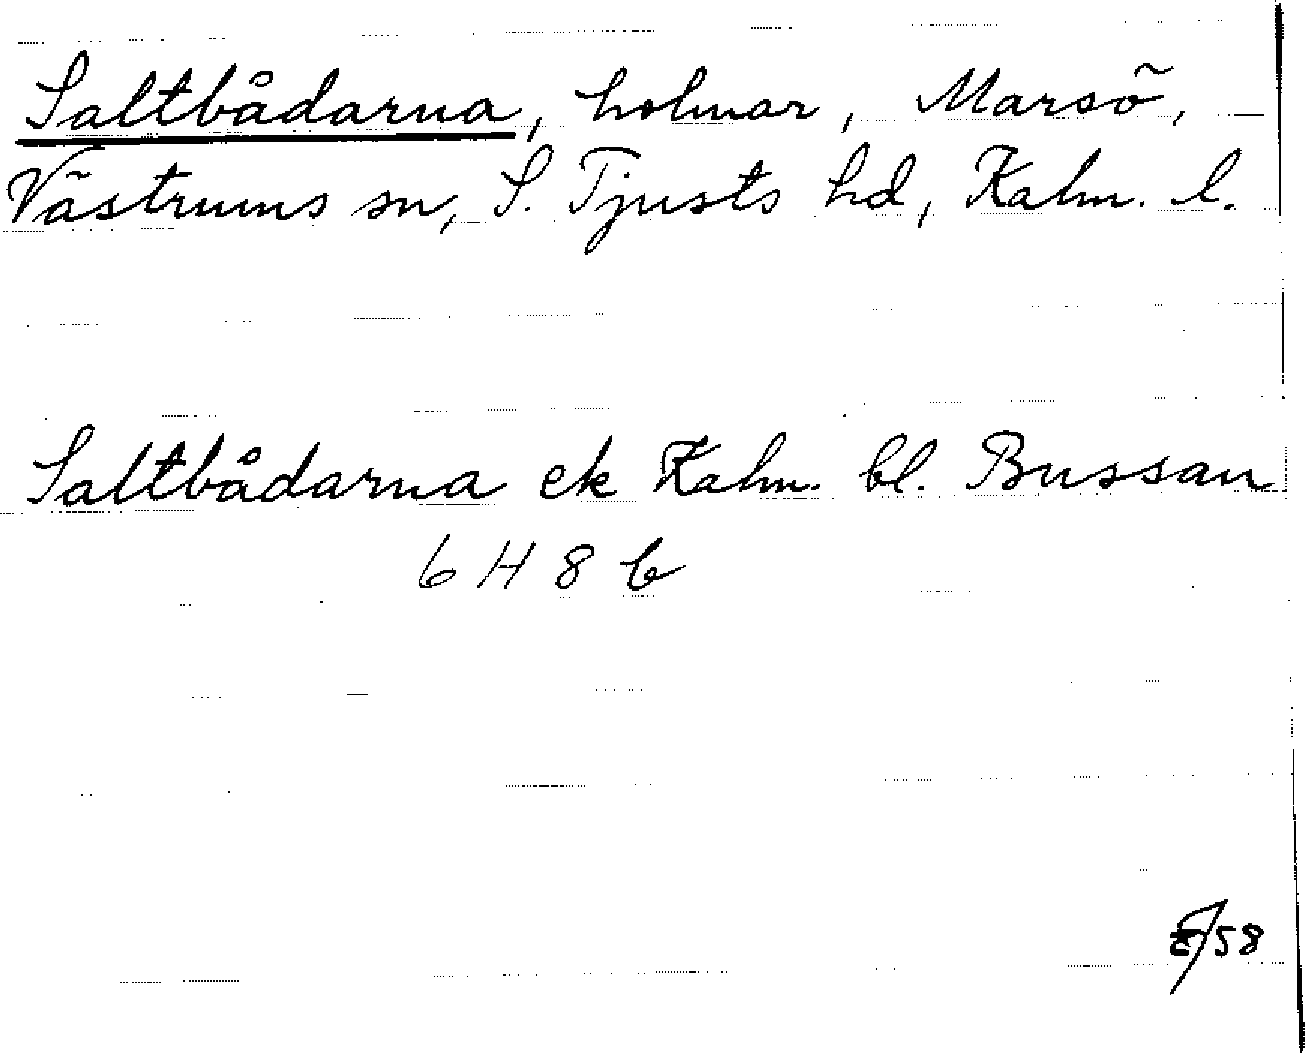 Saltbådarna, holmar, Marsö,
Västrums sn, S. Tjusts hd, Kalm. l.
Saltbådarna ek Kalm. bl. Bussan
6 H 8 b
58